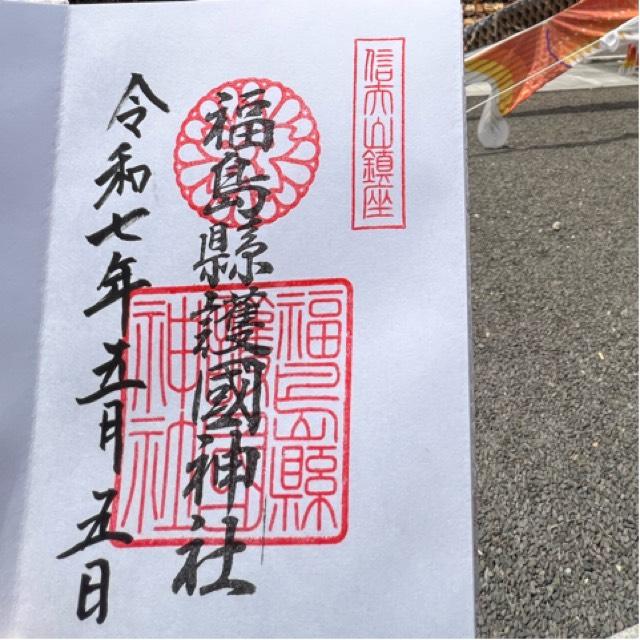 信夫山鎮座
福島縣護國神社
福島縣護國神社
令和七年五月五日